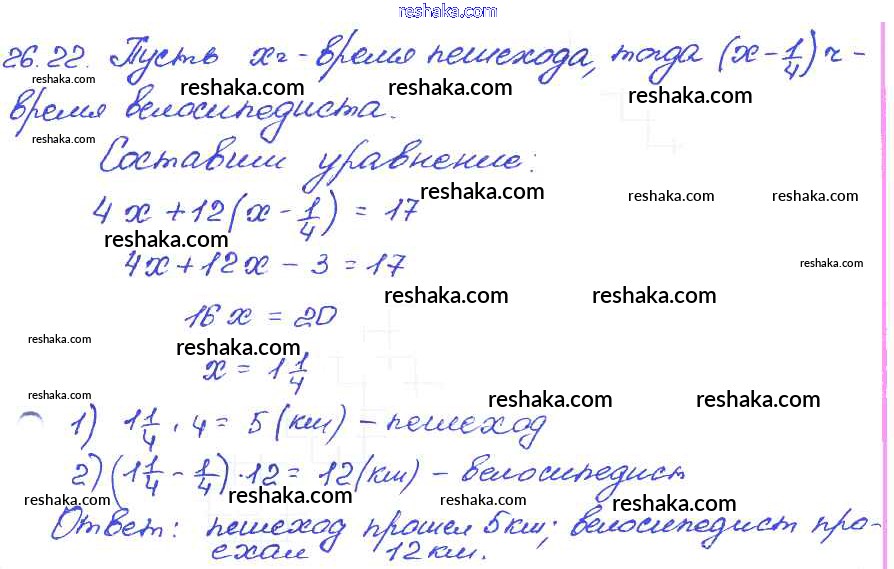 reshaka.com
26.22. Пусть x ч - время пешехода, тогда (x - 1/4) ч -
reshaka.com reshaka.com reshaka.com
время велосипедиста.
reshaka.com
Составим уравнение:
reshaka.com reshaka.com reshaka.com
4x + 12(x - 1/4) = 17
reshaka.com
4x + 12x - 3 = 17
reshaka.com
reshaka.com reshaka.com
16x = 20
reshaka.com reshaka.com
x = 1 1/4
reshaka.com reshaka.com reshaka.com
1) 1 1/4 · 4 = 5 (км) - пешеход
2) (1 1/4 - 1/4) · 12 = 12 (км) - велосипедист
reshaka.com reshaka.com reshaka.com reshaka.com
Ответ: пешеход прошел 5 км; велосипедист про-
ехал 12 км.